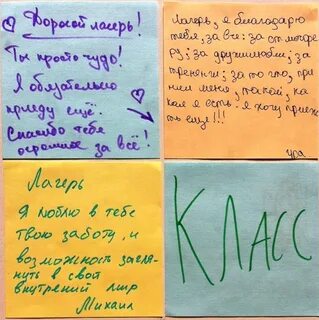 Дорогой лагерь!
Ты просто чудо!
Я обязательно
приеду ещё.
Спасибо тебе
огромное за всё!
Лагерь, я благодарю
тебя, за все: за атмосфе
ру; за дружелюбие; за
тренинги; за то что, при
нел меня, такой, ка
кая я есть. Я хочу приех
ть еще!!!
Ура
Лагерь
Я люблю в тебе
твою заботу, и
возможность загля-
нуть в свой
внутрений мир
Михаил
КЛАСС